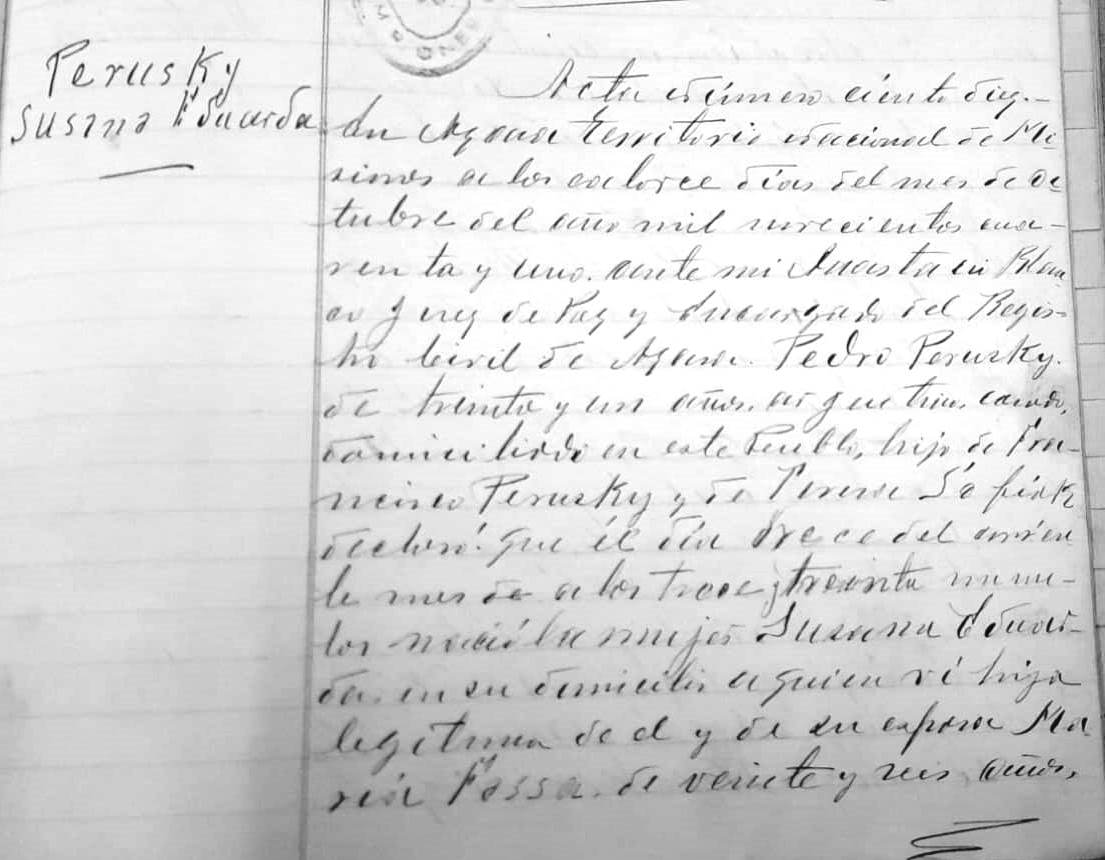 Perusky
Susana Eduarda
Acta número ciento diez.-
En Azara Territorio Nacional de Mi
siones a los catorce días del mes de Oc
tubre del año mil novecientos cua-
renta y uno. ante mi Anastacio Blan
co Juez de Paz y Encargado del Regis-
tro Civil de Azara. Pedro Perusky.
de treinta y un años. argentino, casado,
domiciliado en este Pueblo, hijo de Fran
cisco Perusky y de Teresa
declaró: que el día trece del corrien
te mes de a los trece y treinta minu-
tos nació la mujer Susana Eduar-
da. en su domicilio a quien vi hija
legítima de el y de su esposa Ma
ría Fossa. de veinte y seis años,